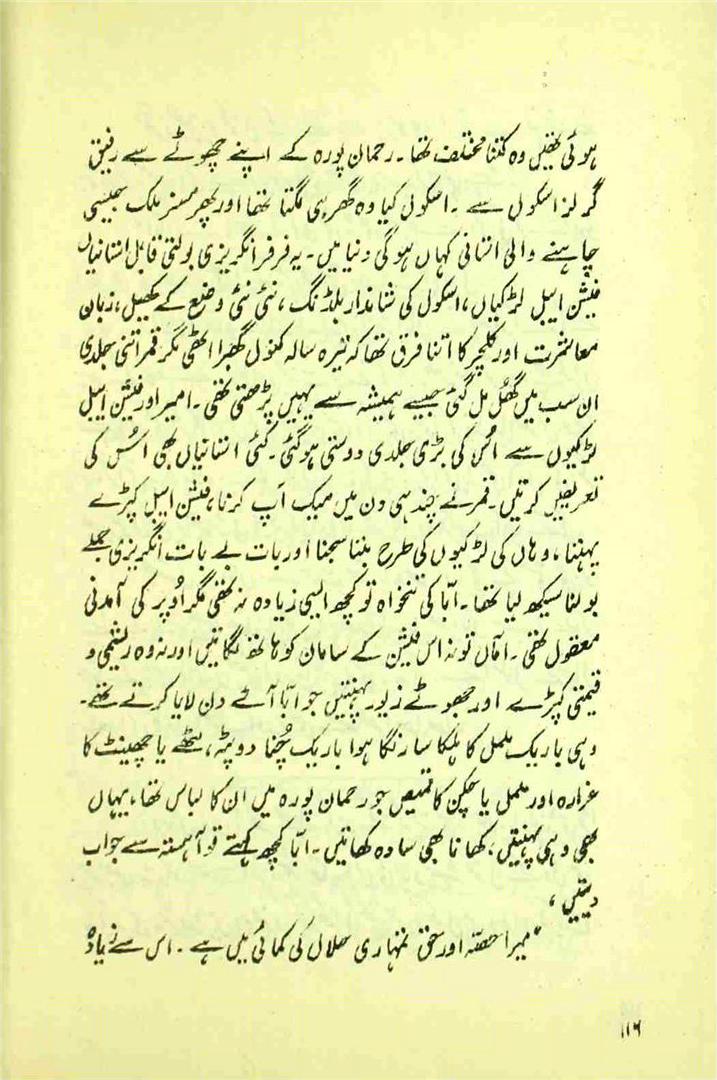 ہوئی تھیں وہ کتنا مختلف تھا۔ رحمان پورہ کے اپنے چھوٹے سے رفیق
گرلز اسکول سے ۔ اسکول کیا وہ گھر ہی لگتا تھا اور پھر مسز ملک جیسی
چاہنے والی استانی کہاں ہو گی دنیا میں۔ یہ فرفر انگریزی بولتی قابل استانیاں
فیشن ایبل لڑکیاں، اسکول کی شاندار بلڈنگ ، نئی نئی وضع کے کھیل، زبان
معاشرت اور کلچر کا اتنا فرق تھا کہ تیرہ سالہ کنول گھبرا اٹھی مگر قمر اتنی جلدی
ان سب میں گھُل مل گئی جیسے ہمیشہ سے یہیں پڑھتی تھی۔ امیر اور فیشن ایبل
لڑکیوں سے اُس کی بڑی جلدی دوستی ہو گئی۔ کئی استانیاں بھی اُس کی
تعریفیں کرتیں۔ قمر نے چند ہی دن میں میک اَپ کرنا، فیشن ایبل کپڑے
پہننا، وہاں کی لڑکیوں کی طرح بننا سجنا اور بات بے بات انگریزی جملے
بولنا سیکھ لیا تھا۔ ابّا کی تنخواہ تو کچھ ایسی زیادہ نہ تھی مگر اُوپر کی آمدنی
معقول تھی۔ امّاں تو نہ اس فیشن کے سامان کو ہاتھ لگاتیں اور نہ وہ ریشمی و
قیمتی کپڑے اور جھوٹے زیور پہنتیں جو ابّا آئے دن لایا کرتے تھے۔
وہی باریک ململ کا ہلکا سا رنگا ہوا باریک چُنا دوپٹہ، لٹھے یا چھینٹ کا
غرارہ اور ململ یا چکن کا قمیص جو رحمان پورہ میں ان کا لباس تھا، یہاں
بھی وہی پہنتیں، کھانا بھی سادہ کھاتیں۔ ابّا کچھ کہتے تو آہستہ سے جواب
دیتیں ،
"میرا حصّہ اور حق تمہاری حلال کی کمائی میں ہے۔ اس سے زیادہ
۱۱۶